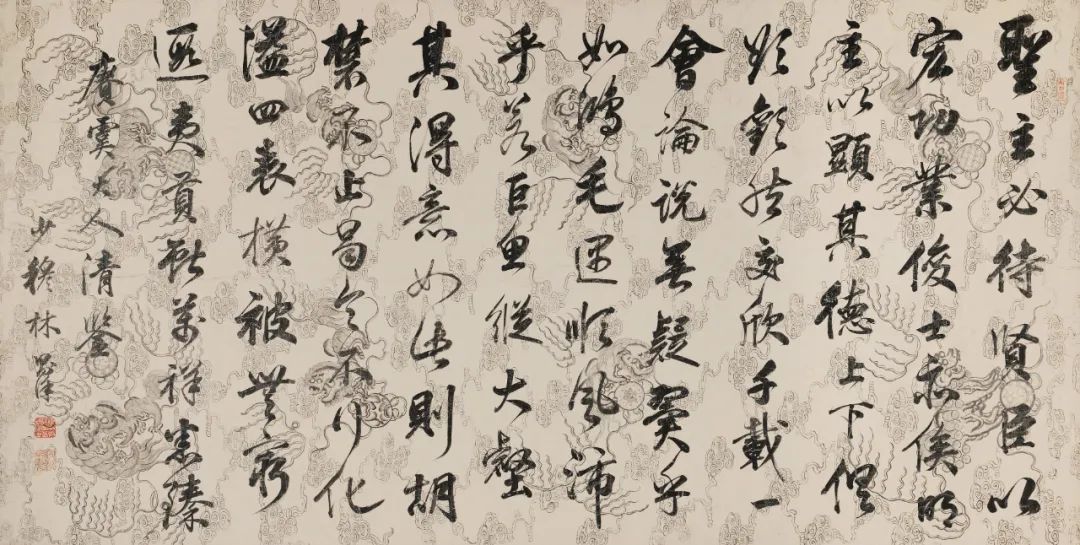 聖主必待賢臣以
宏功業俊士亦俟明
主以顯其德上下俱
欲歡然交欣千載一
會論說無疑翼乎
如鴻毛遇順風沛
乎若巨魚縱大壑
其得意如此則胡
禁不止曷令不行化
溢四表橫被無窮
遐夷貢獻萬祥悉臻
賡大人清鑒
少穆林則徐